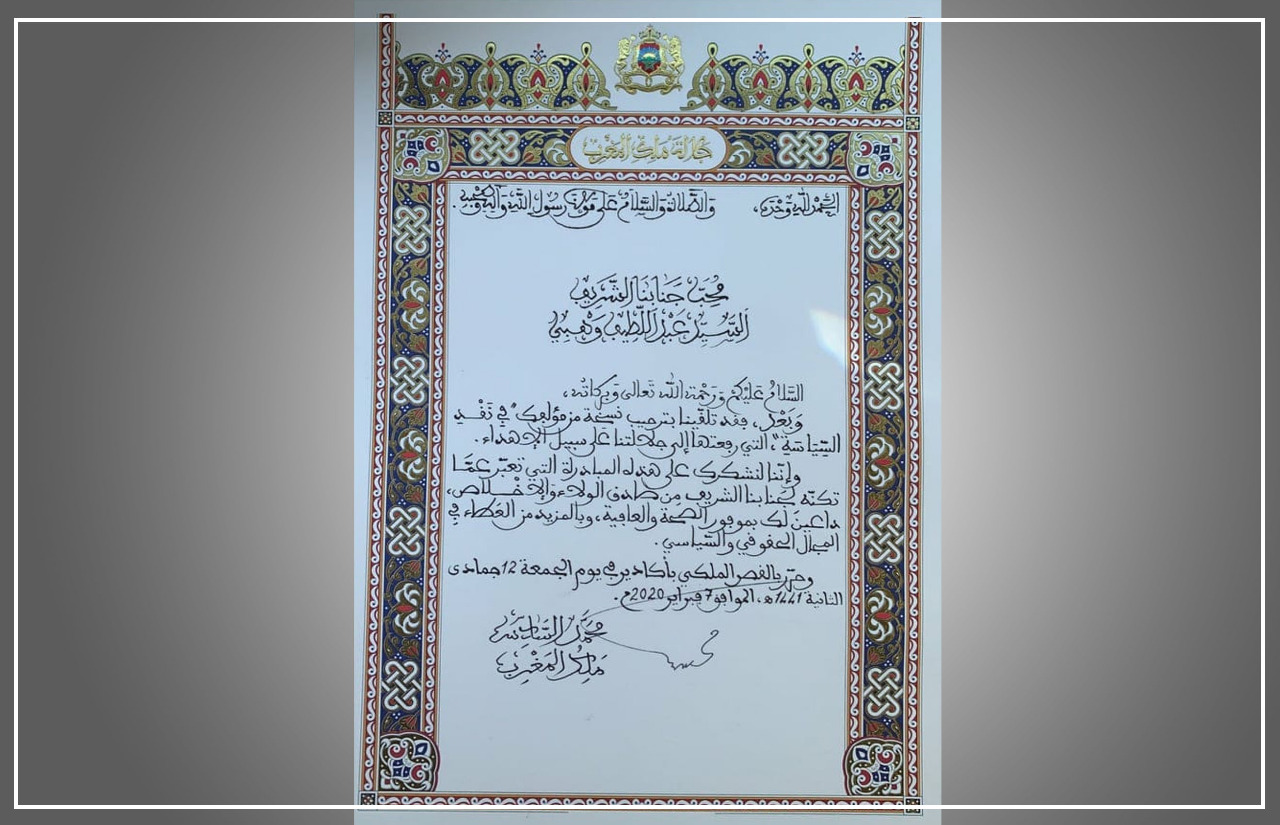 جلالة ملك المغرب
الحمد لله وحده، والصلاة والسلام على مولانا رسول الله وآله وصحبه.
محب جنابنا الشريف
السيد عبد اللطيف وهبي
السلام عليكم ورحمة الله تعالى وبركاته،
وبعد، فقد تلقينا بترحيب نسخة من مؤلفك "في نقد
السياسة"، التي رفعتها إلى جلالتنا على سبيل الإهداء.
وإننا لنشكرك على هذه المبادرة التي تعبر عما
تكنه لجنابنا الشريف من صادق الولاء والإخلاص،
داعين لك بموفور الصحة والعافية، وبالمزيد من العطاء في
المجال الحقوقي والسياسي.
وحرر بالقصر الملكي بأكادير في يوم الجمعة 12 جمادى
الثانية 1441ه، الموافق 7 فبراير 2020م.
محمد السادس
ملك المغرب